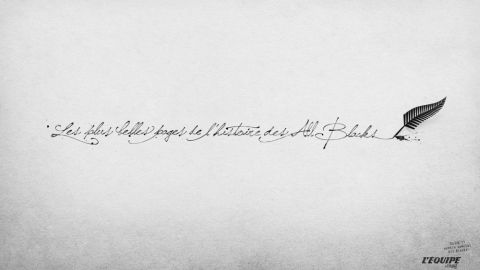 Les plus belles pages de l'histoire des All Blacks
L'EQUIPE